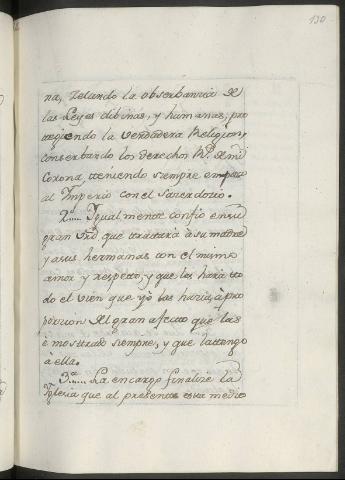 130
na, Zelando la obserbancia de
las Leyes dibinas, y humanas; pro
tegiendo la verdadera Religion,
conserbando los derechos Rs. de mi
Corona, teniendo siempre en paz
al Imperio con el Sacerdozio.
2a..... Igualmente confio en su
gran Vrd. que tratará a su madre
y a sus hermanas con el mismo
amor y respetto, y que las hará to
do el vien que yo las haria, à pro
porcion del gran afecto que las
è mostrado siempre, y que la tengo
à ella.
3a..... La encargo finalize la
Iglesia que al presente esta medio